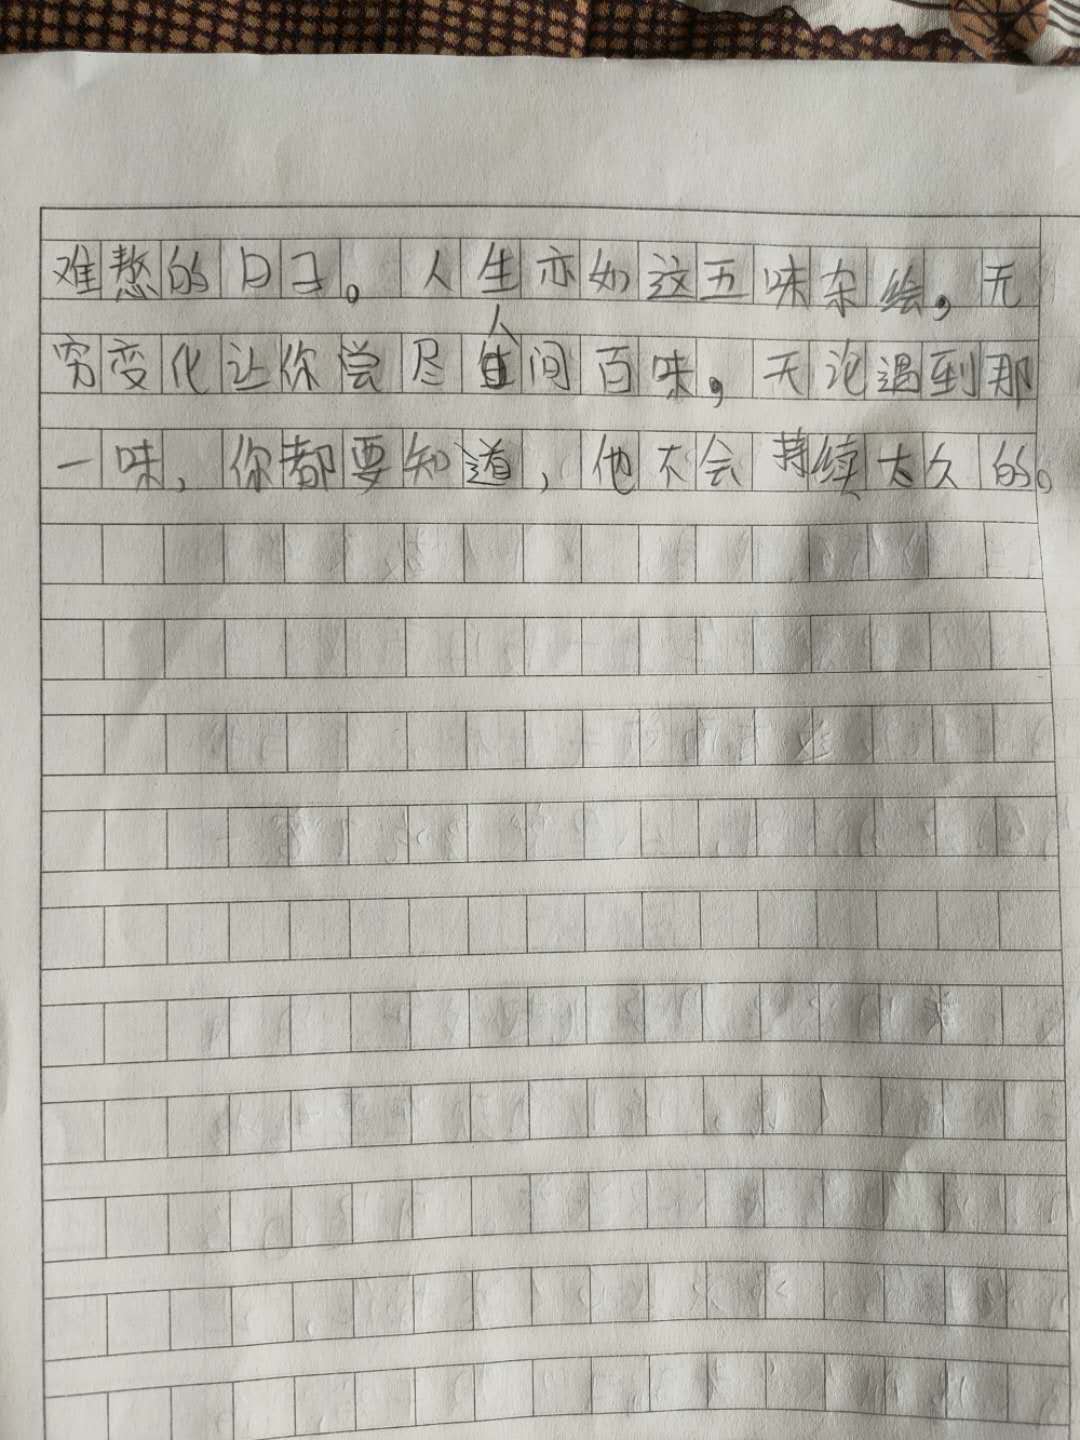 难熬的日子。人生亦如这五味杂绘，无
穷变化让你尝尽人间百味，无论遇到那
一味，你都要知道，他不会持续太久的。